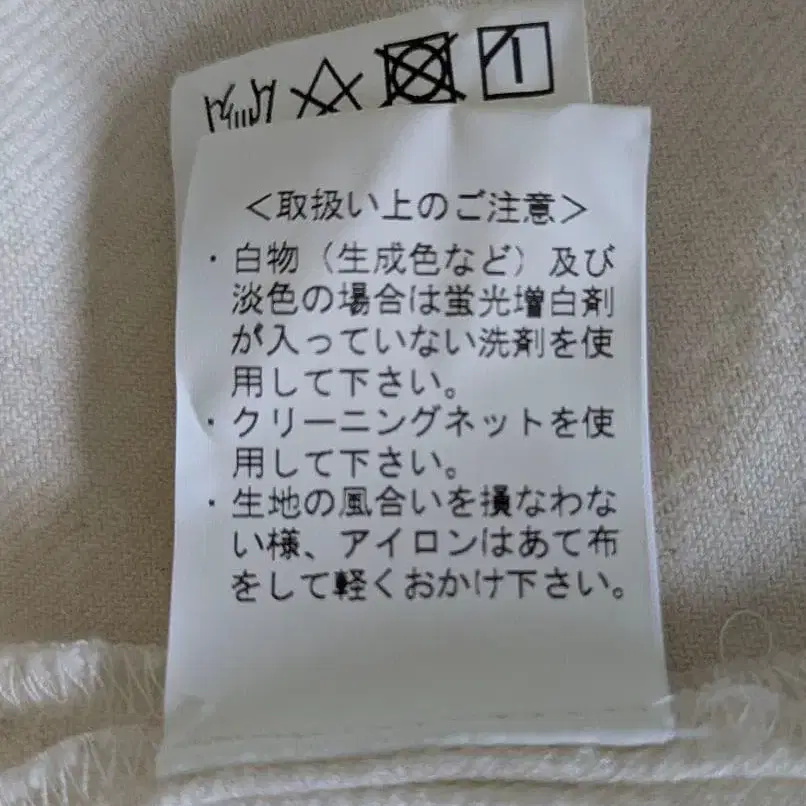 ＜取扱い上のご注意＞
・白物（生成色など）及び
淡色の場合は蛍光増白剤
が入っていない洗剤を使
用して下さい。
・クリーニングネットを使
用して下さい。
・生地の風合いを損なわな
い様、アイロンはあて布
をして軽くおかけ下さい。